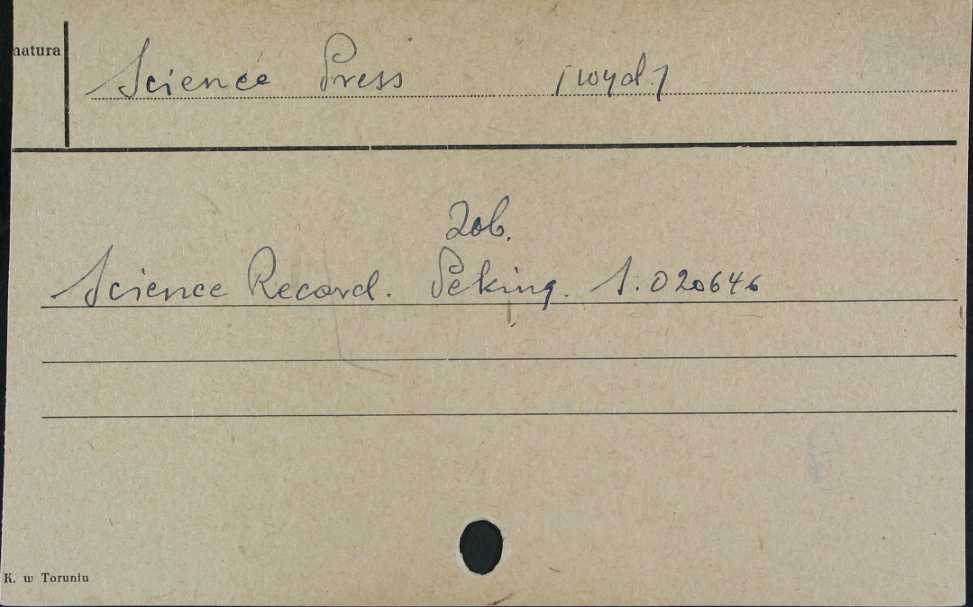 natura
Science Press [wyd.]
Zob.
Science Record. Peking. S. 020646
K. w Toruniu